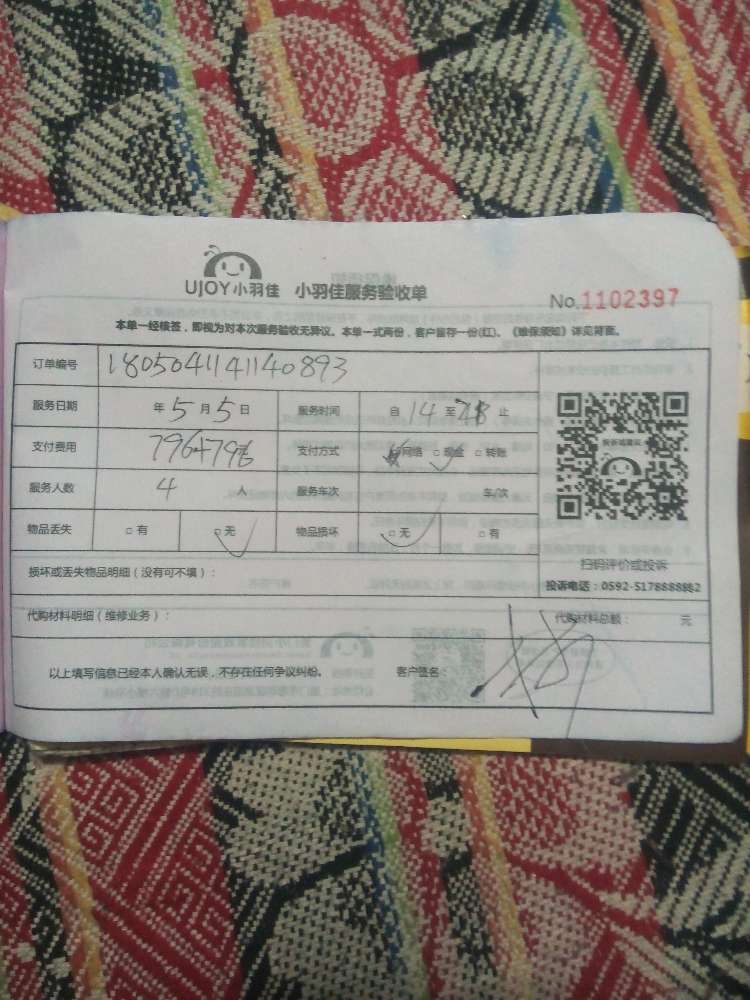 UJOY小羽佳 小羽佳服务验收单
No.1102397
本单一经核签，即视为对本次服务验收无异议。本单一式两份，客户留存一份(红)。《维保须知》详见背面。
订单编号 1805041141140893
服务日期 年5月5日 服务时间 自14至18止
支付费用 796+796 支付方式 网络 □现金 □转账
服务人数 4人 服务车次 车/次
物品丢失 □有 □无 物品损坏 □无 □有
扫码评价或投诉
损坏或丢失物品明细（没有可不填）：
投诉电话：0592-5178888
代购材料明细（维修业务）： 代购材料总额： 元
以上填写信息已经本人确认无误，不存在任何争议纠纷。 客户签名：